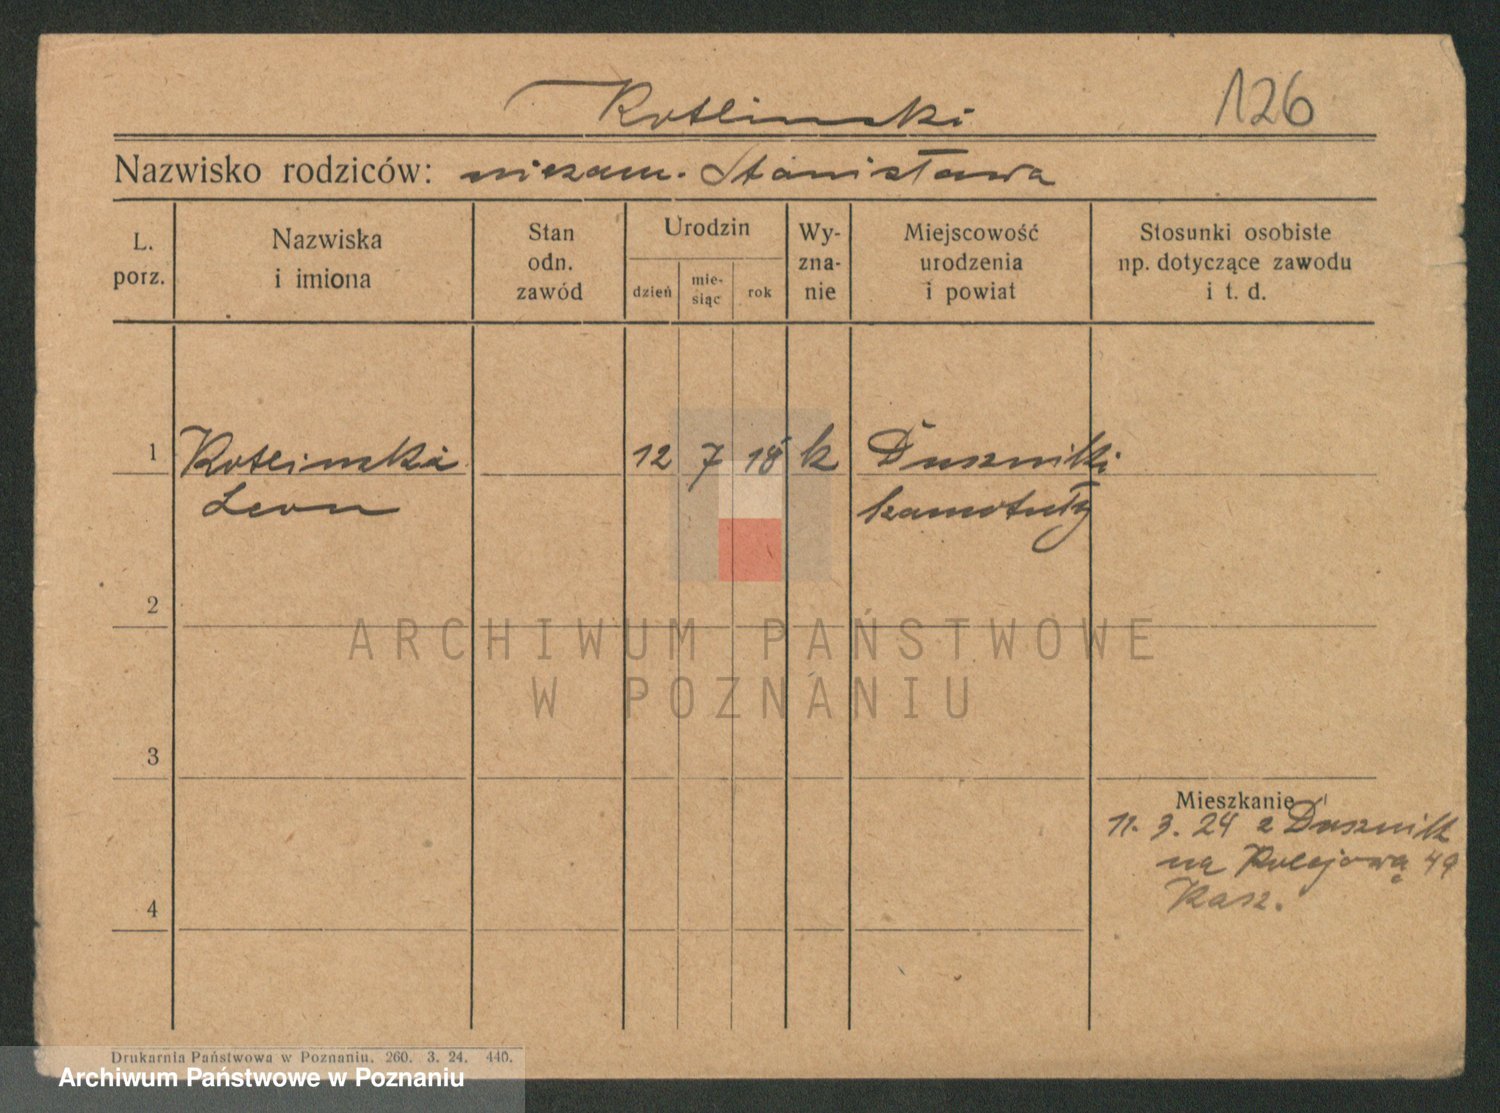 Kotlinski 126
Nazwisko rodziców: niezam. Stanisława
L. porz.
Nazwiska i imiona
Stan odn. zawód
Urodzin
dzień
mie-siąc
rok
Wy-zna-nie
Miejscowość urodzenia i powiat
Stosunki osobiste np. dotyczące zawodu i t. d.
1 Kotlinski 12 7 18 k Duszniki
Leon
2
ARCHIWUM PAŃSTWOWE
W POZNANIU
3
Mieszkanie
11. 3. 24 z Dusznik
na Kolejową 49
4
Drukarnia Państwowa w Poznaniu. 260. 3. 24. 440.
Archiwum Państwowe w Poznaniu